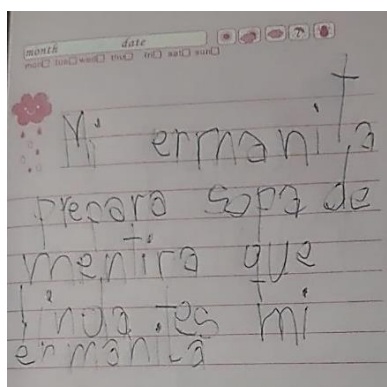 month date
mon tue wed thu fri sat sun
Mi ermanita
prepara sopa de
mentira que
linda .tes mi
ermanita